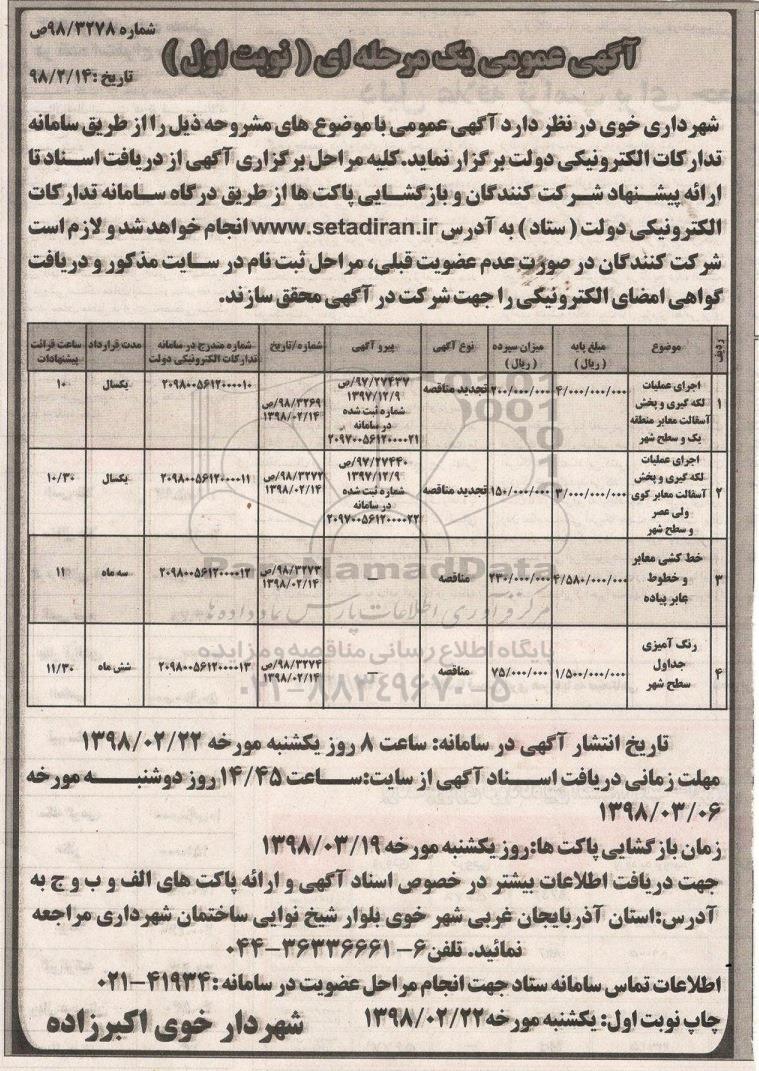 شماره ۹۸/۳۲۷۸ص
آگهی عمومی یک مرحله ای ( نوبت اول )
تاریخ :۹۸/۲/۱۴
شهرداری خوی در نظر دارد آگهی عمومی با موضوع های مشروحه ذیل را از طریق سامانه
تدارکات الکترونیکی دولت برگزار نماید.کلیه مراحل برگزاری آگهی از دریافت اسناد تا
ارائه پیشنهاد شرکت کنندگان و بازگشایی پاکت ها از طریق درگاه سامانه تدارکات
الکترونیکی دولت ( ستاد ) به آدرس www.setadiran.ir انجام خواهد شد و لازم است
شرکت کنندگان در صورت عدم عضویت قبلی، مراحل ثبت نام در سایت مذکور و دریافت
گواهی امضای الکترونیکی را جهت شرکت در آگهی محقق سازند.
ردیف موضوع مبلغ پایه ( ریال ) میزان سپرده ( ریال ) نوع آگهی پیرو آگهی شماره/تاریخ شماره مندرج در سامانه تدارکات الکترونیکی دولت مدت قرارداد ساعت قرائت پیشنهادات
۱ اجرای عملیات لکه گیری و پخش آسفالت معابر منطقه یک و سطح شهر ۴/۰۰۰/۰۰۰/۰۰۰ ۲۰۰/۰۰۰/۰۰۰ تجدید مناقصه ۹۷/۲۷۴۳۷/ص ۱۳۹۷/۱۲/۹ شماره ثبت شده در سامانه ۲۰۹۷۰۰۵۶۱۲۰۰۰۰۲۱ ۹۸/۳۲۶۹/ص ۱۳۹۸/۰۲/۱۴ ۲۰۹۸۰۰۵۶۱۲۰۰۰۰۱۰ یکسال ۱۰
۲ اجرای عملیات لکه گیری و پخش آسفالت معابر کوی ولی عصر و سطح شهر ۳/۰۰۰/۰۰۰/۰۰۰ ۱۵۰/۰۰۰/۰۰۰ تجدید مناقصه ۹۷/۲۷۴۴۰/ص ۱۳۹۷/۱۲/۹ شماره ثبت شده در سامانه ۲۰۹۷۰۰۵۶۱۲۰۰۰۰۲۲ ۹۸/۳۲۷۲/ص ۱۳۹۸/۰۲/۱۴ ۲۰۹۸۰۰۵۶۱۲۰۰۰۰۱۱ یکسال ۱۰/۳۰
۳ خط کشی معابر و خطوط عابر پیاده ۴/۵۸۰/۰۰۰/۰۰۰ ۲۳۰/۰۰۰/۰۰۰ مناقصه — ۹۸/۳۲۷۳/ص ۱۳۹۸/۰۲/۱۴ ۲۰۹۸۰۰۵۶۱۲۰۰۰۰۱۲ سه ماه ۱۱
۴ رنگ آمیزی جداول سطح شهر ۱/۵۰۰/۰۰۰/۰۰۰ ۷۵/۰۰۰/۰۰۰ مناقصه — ۹۸/۳۲۷۴/ص ۱۳۹۸/۰۲/۱۴ ۲۰۹۸۰۰۵۶۱۲۰۰۰۰۱۳ شش ماه ۱۱/۳۰
ParsNamadData
مرکز فرآوری اطلاعات پارس نماد داده ها
پایگاه اطلاع رسانی مناقصه و مزایده
۰۲۱-۸۸۳۴۹۶۷۰-۵
تاریخ انتشار آگهی در سامانه: ساعت ۸ روز یکشنبه مورخه ۱۳۹۸/۰۲/۲۲
مهلت زمانی دریافت اسناد آگهی از سایت:ساعت ۱۴/۴۵ روز دوشنبه مورخه
۱۳۹۸/۰۳/۰۶
زمان بازگشایی پاکت ها:روز یکشنبه مورخه ۱۳۹۸/۰۳/۱۹
جهت دریافت اطلاعات بیشتر در خصوص اسناد آگهی و ارائه پاکت های الف و ب و ج به
آدرس:استان آذربایجان غربی شهر خوی بلوار شیخ نوایی ساختمان شهرداری مراجعه
نمائید. تلفن۶- ۳۶۳۳۶۶۶۱-۰۴۴
اطلاعات تماس سامانه ستاد جهت انجام مراحل عضویت در سامانه :۴۱۹۳۴-۰۲۱
چاپ نوبت اول: یکشنبه مورخه ۱۳۹۸/۰۲/۲۲
شهردار خوی اکبرزاده